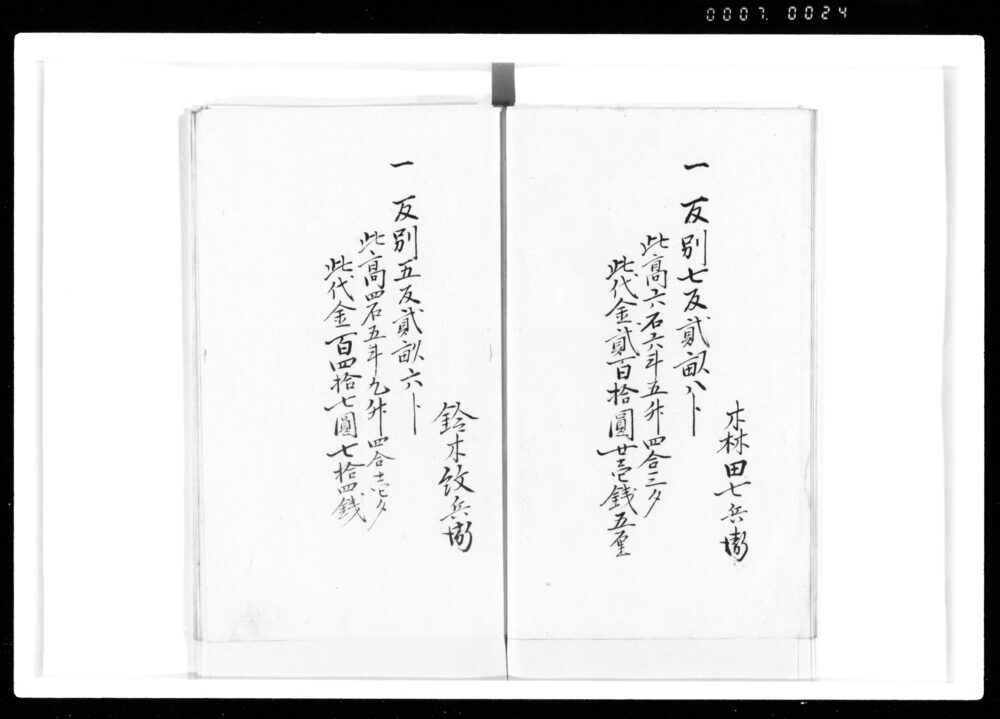 0007. 0024
森田七兵衛
一 反別七反貳畝八卜
此高六石六斗五升四合三夕
此代金貳百拾圓廿壱銭五厘
鈴木政兵衛
一 反別五反貳畝六卜
此高四石五斗九升四合壱夕
此代金百四拾七圓七拾四銭